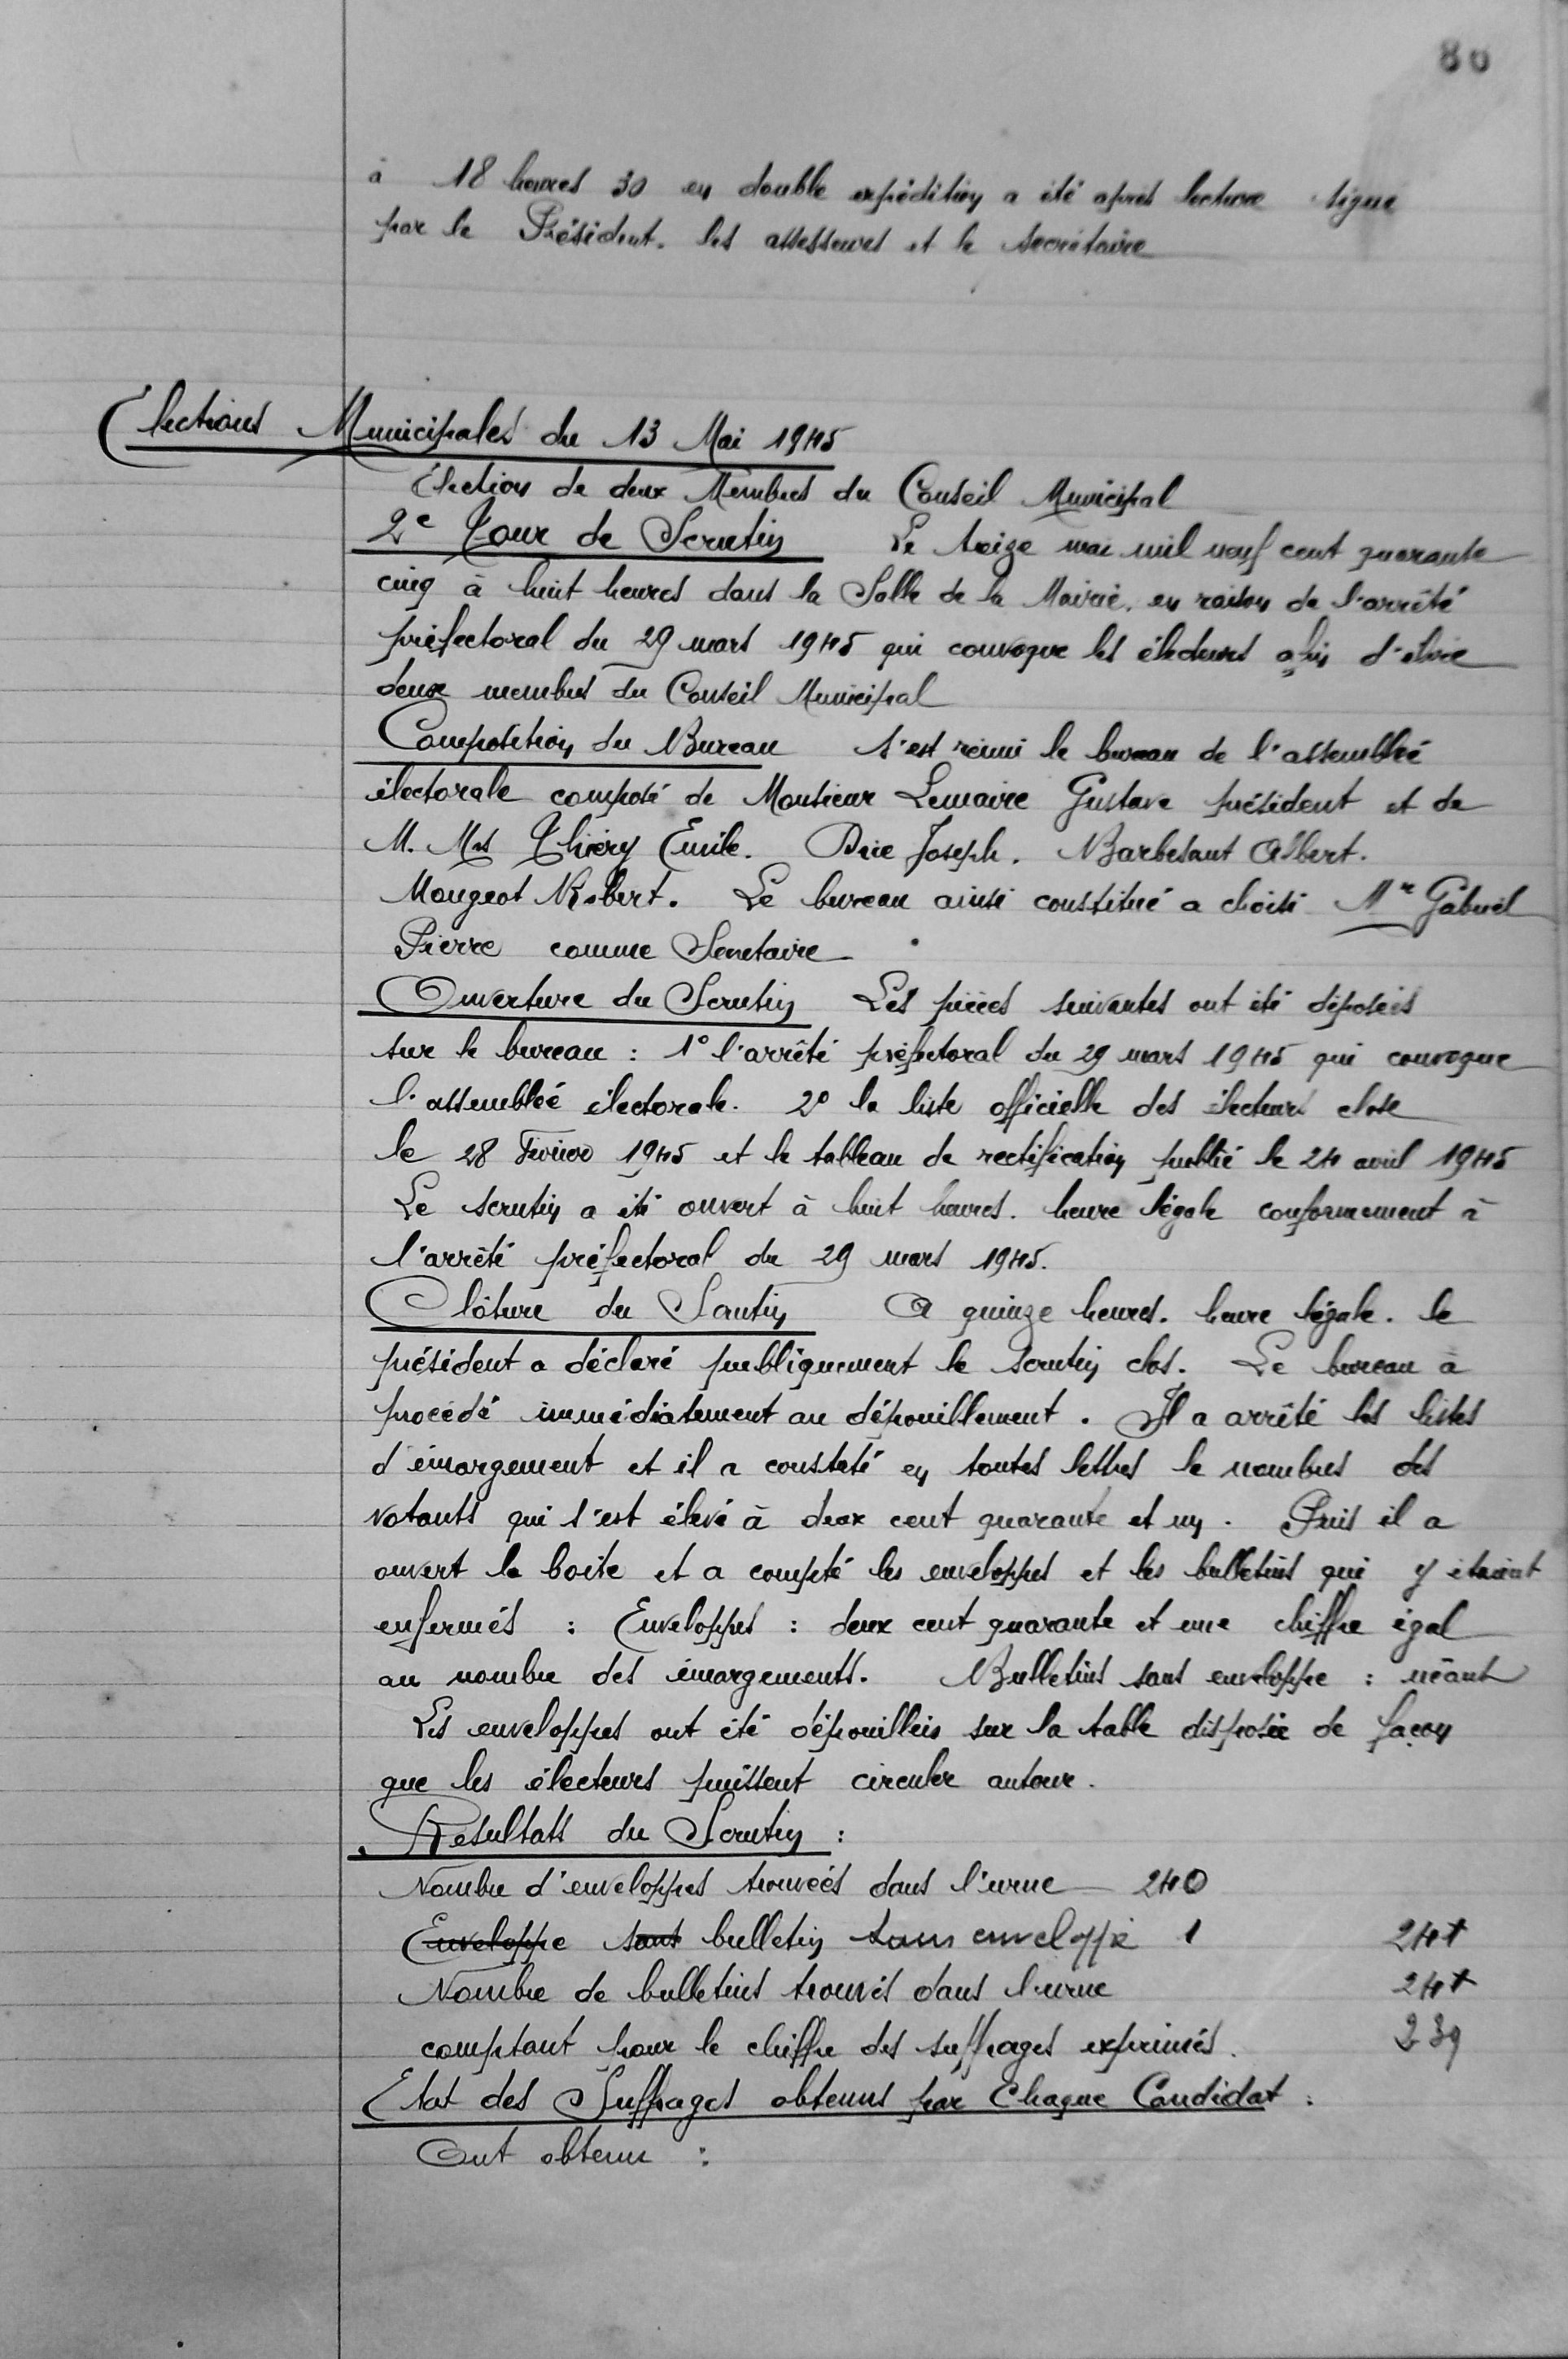 80
à 18 heures 30 en double expédition a été après lecture signé
par le Président. les assesseurs et le secrétaire
Elections Municipales du 13 Mai 1945
Election de deux Membres du Conseil Municipal
2e Tour de Scrutin Le treize mai mil neuf cent quarante
cinq à huit heures dans la Salle de la Mairie. en raison de l'arrêté
préfectoral du 29 mars 1945 qui convoque les électeurs afin d'élire
deux membres du Conseil Municipal
Composition du Bureau s'est réuni le bureau de l'assemblée
électorale composé de Monsieur Lemaire Gustave président et de
M. Mrs Thiéry Emile. Joseph. Barbesant Albert.
Mougeot Robert. Le bureau ainsi constitué a choisi Mr Gabriel
Pierre comme Secretaire
Ouverture du Scrutin Les pièces suivantes ont été déposées
sur le bureau : 1° l'arrêté préfectoral du 29 mars 1945 qui convoque
l'assemblée électorale. 2° la liste officielle des électeurs close
le 28 Février 1945 et le tableau de rectification publié le 24 avril 1945
Le scrutin a été ouvert à huit heures. heure légale conformement à
l'arrêté préfectoral du 29 mars 1945.
Clôture du Scrutin A quinze heures. heure légale. le
président a déclaré publiquement le scrutin clos. Le bureau à
procédé immédiatement au dépouillement. Il a arrêté les listes
d'émargement et il a constaté en toutes lettres le nombres des
votants qui s'est élevé à deux cent quarante et un. Puis il a
ouvert la boite et a compté les enveloppes et les bulletins qui y étaient
enfermés : Enveloppes : deux cent quarante et une chiffre égal
au nombre des émargements. Bulletins sans enveloppe : néant
Les enveloppes ont été dépouillées sur la table disposée de façon
que les électeurs puissent circuler autour.
Résultats du Scrutin :
Nombre d'enveloppes trouvées dans l'urne 240
Enveloppe sans bulletin sans enveloppe 1 241
Nombre de bulletins trouvés dans l'urne 241
comptant pour le chiffre des suffrages exprimés. 239
Etat des Suffrages obtenus par Chaque Candidat :
Ont obtenu :